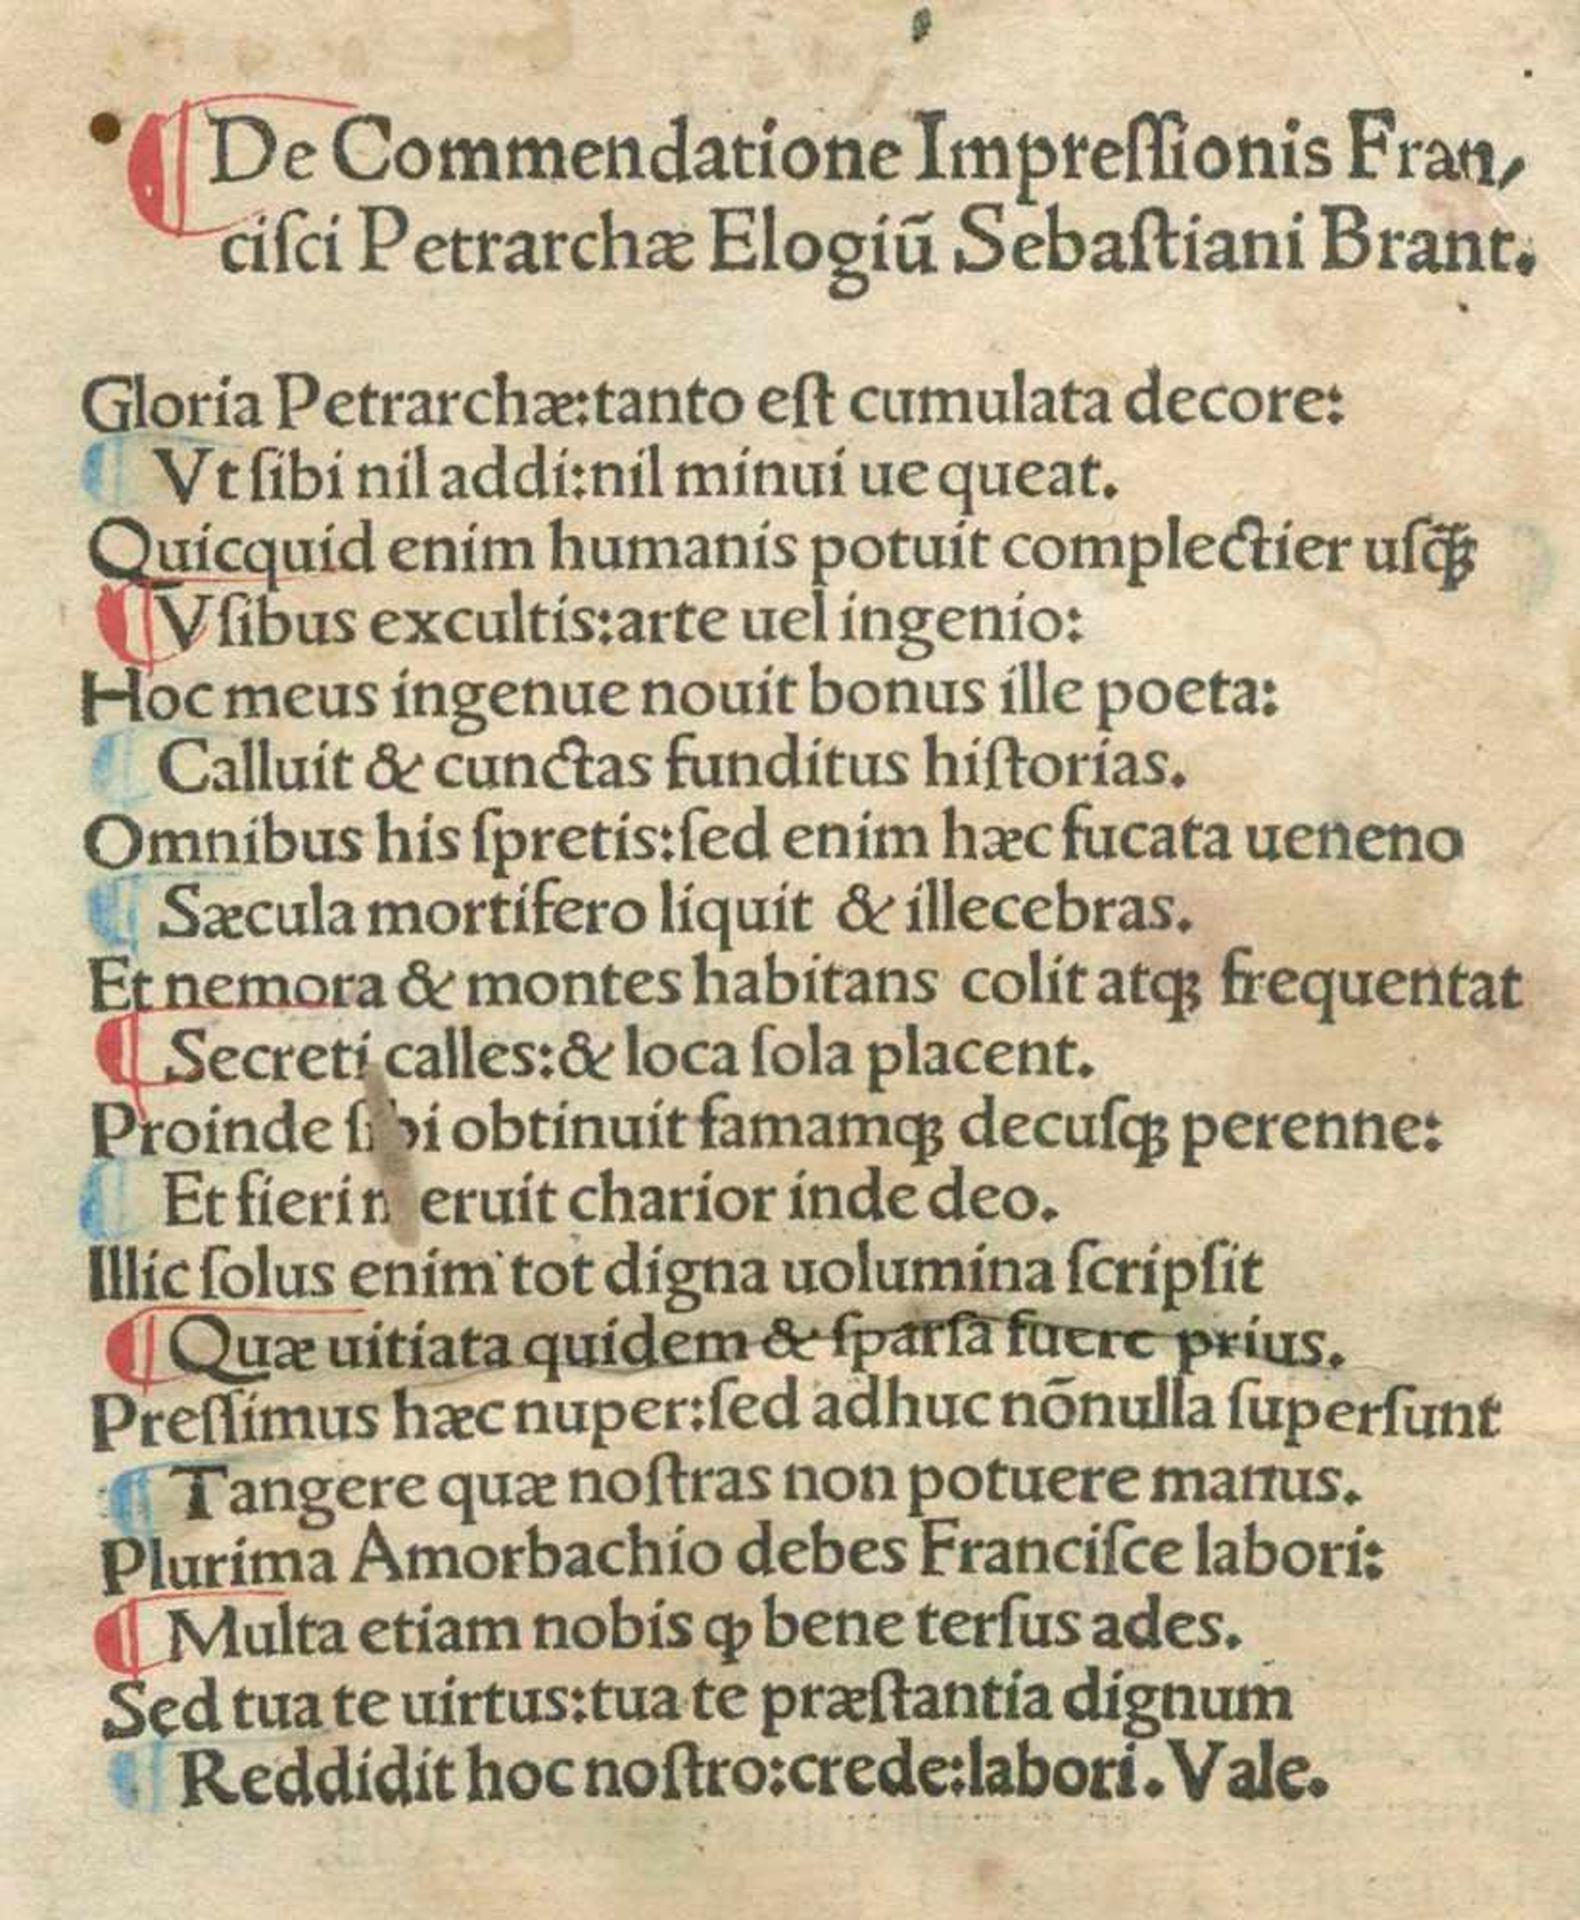 De Commendatione Impreſſionis Fran,
ciſci Petrarchæ Elogiū Sebaſtiani Brant.
Gloria Petrarchæ:tanto eſt cumulata decore:
Vt ſibi nil addi:nil minui ue queat.
Quicquid enim humanis potuit complectier uſq̃ꝫ
Vſibus excultis:arte uel ingenio:
Hoc meus ingenue nouit bonus ille poeta:
Calluit & cunctas funditus hiſtorias.
Omnibus his ſpretis:ſed enim hæc fucata ueneno
Sæcula mortifero liquit & illecebras.
Et nemora & montes habitans colit atqꝫ frequentat
Secreti calles:& loca ſola placent.
Proinde ſibi obtinuit famamqꝫ decuſqꝫ perenne:
Et fieri meruit charior inde deo.
Illic ſolus enim tot digna uolumina ſcripſit
Quæ uitiata quidem & ſparſa fuere prius.
Preſſimus hæc nuper:ſed adhuc nōnulla ſuperſunt
Tangere quæ noſtras non potuere manus.
Plurima Amorbachio debes Franciſce labori:
Multa etiam nobis ꝙ bene terſus ades.
Sed tua te uirtus:tua te præſtantia dignum
Reddidit hoc noſtro:crede:labori. Vale.